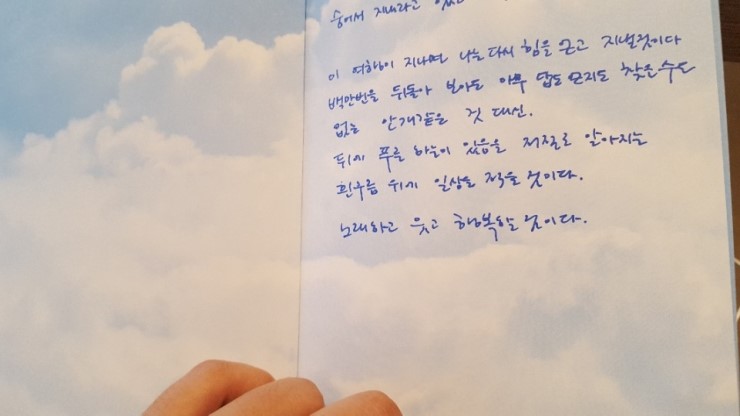 숨어서 지내라고 있는
이 여행이 지나면 나는 다시 힘을 얻고 지낼것이다
백만번을 뒤돌아 보아도 아무 답도 먼지도 찾을 수도
없는 안개같은 것 대신.
뒤에 푸른 하늘이 있음을 저절로 알아지는
흰구름 위에 일상을 적을 것이다.
노래하고 웃고 행복할 것이다.